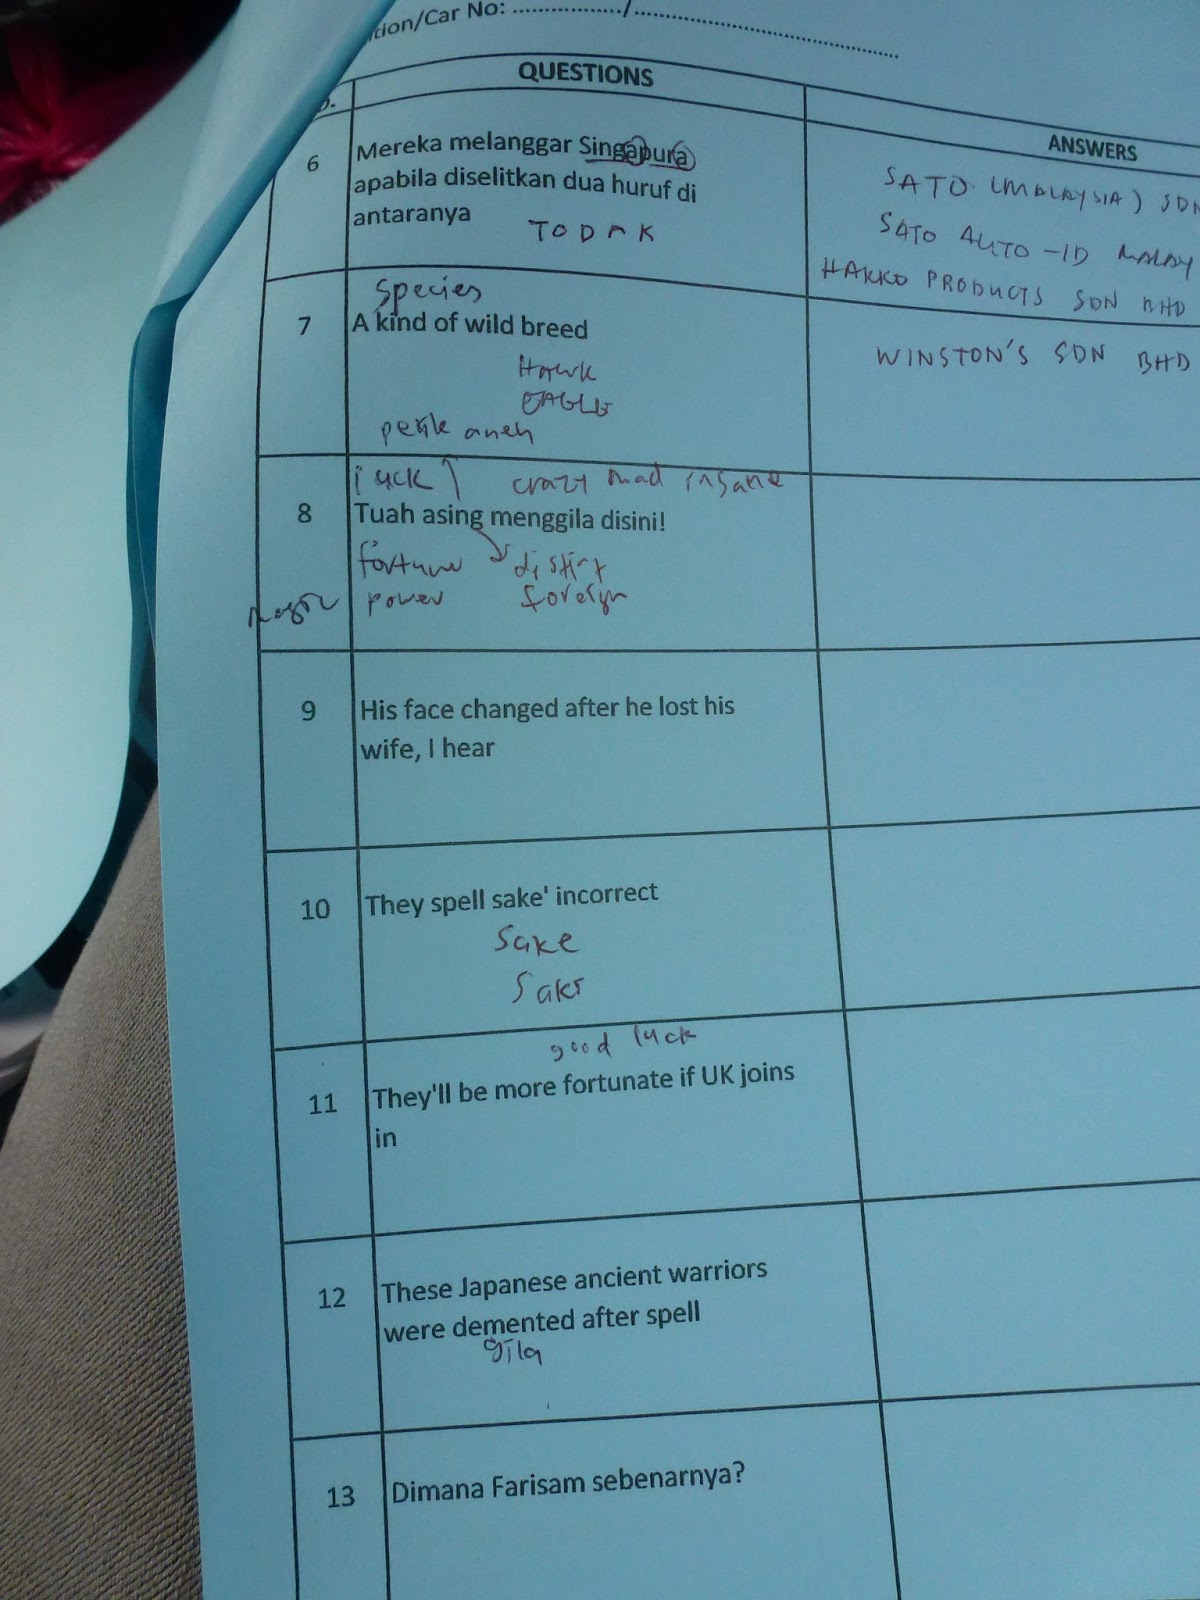 tion/Car No: ................../............................................
QUESTIONS
ANSWERS
6
Mereka melanggar Singapura
apabila diselitkan dua huruf di
antaranya
TODAK
SATO (MALAYSIA) SDN
SATO AUTO-ID MALAY
HAKKO PRODUCTS SDN BHD
species
7
A kind of wild breed
HAWK
EAGLE
pelik aneh
WINSTON'S SDN BHD
luck crazy mad insane
8
Tuah asing menggila disini!
fortune
power foreign
9
His face changed after he lost his
wife, I hear
10
They spell sake' incorrect
Sake
good luck
11
They'll be more fortunate if UK joins
in
12
These Japanese ancient warriors
were demented after spell
gila
13
Dimana Farisam sebenarnya?